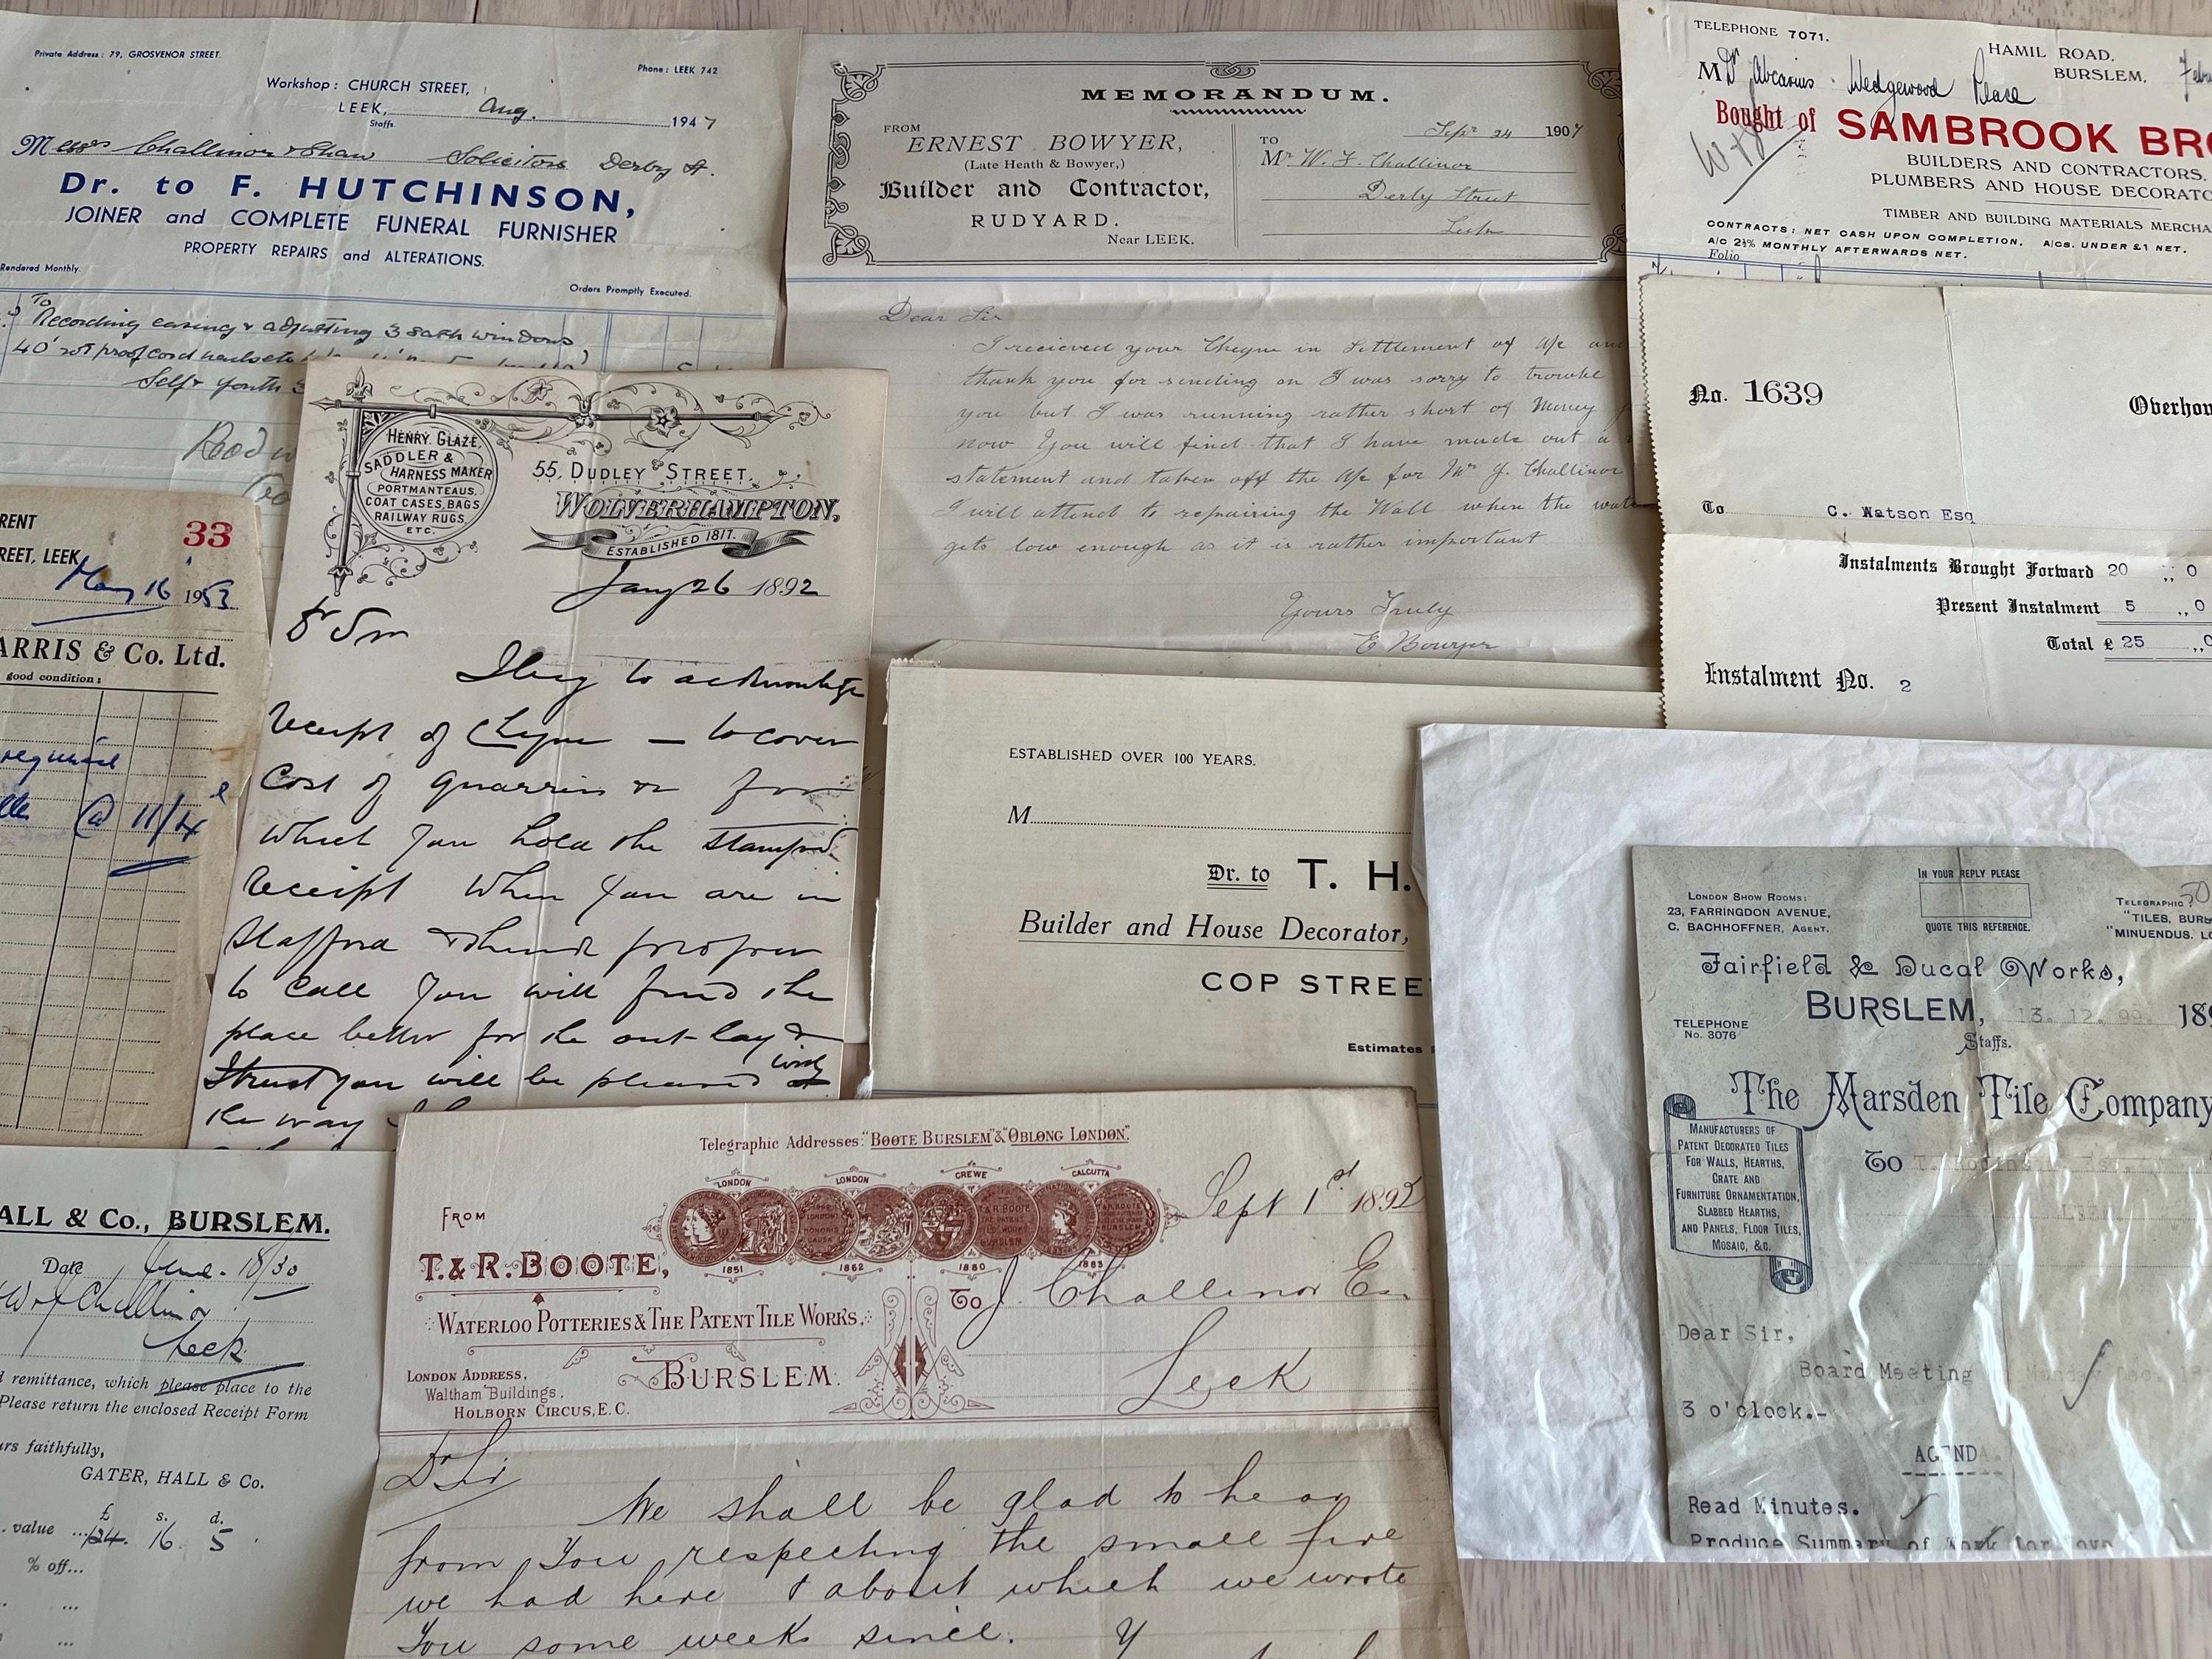 Private Address : 79, GROSVENOR STREET.
Phone : LEEK 742
Workshop : CHURCH STREET,
LEEK, Aug. 1947
Staffs.
Messrs Challinor & Shaw Solicitors Derby St.
Dr. to F. HUTCHINSON,
JOINER and COMPLETE FUNERAL FURNISHER
PROPERTY REPAIRS and ALTERATIONS.
Rendered Monthly.
Orders Promptly Executed.
To
Recording easing & adjusting 3 sash windows
40' rot proof cord
Self & youth 3
MEMORANDUM.
Sept 24 1907
FROM
ERNEST BOWYER,
(Late Heath & Bowyer,)
Builder and Contractor,
RUDYARD.
Near LEEK.
TO
Mr W. F. Challinor
Derby Street
Leek
Dear Sir
I recieved your Cheque in Settlement of A/c an
thank you for sending on I was sorry to trouble
you but I was running rather short of Money
now You will find that I have made out a
statement and taken off the A/c for Mr J. Challinor
I will attend to repairing the Wall when the wate
gets low enough as it is rather important
Yours Truly
E Bowyer
TELEPHONE 7071.
HAMIL ROAD,
BURSLEM,
Dr Abcarius Wedgewood Place
Bought of SAMBROOK BRO
BUILDERS AND CONTRACTORS.
PLUMBERS AND HOUSE DECORATO
TIMBER AND BUILDING MATERIALS MERCHA
CONTRACTS: NET CASH UPON COMPLETION. A/CS. UNDER £1 NET.
A/C 2½% MONTHLY AFTERWARDS NET.
Folio
No. 1639
Overhou
To C. Watson Esq
Instalments Brought Forward 20 ,, 0
Present Instalment 5 ,,0
Total £ 25 ,,0
Instalment No. 2
RENT
33
REET, LEEK
May 16 1953
ARRIS & Co. Ltd.
good condition :
required
@ 11/4
HENRY GLAZE,
SADDLER &
HARNESS MAKER
PORTMANTEAUS,
COAT CASES, BAGS
RAILWAY RUGS
ETC.
55, DUDLEY STREET,
WOLVERHAMPTON,
ESTABLISHED 1817.
Jany 26 1892
I beg to acknowledge
receipt of Cheque — to cover
Cost of quarries & for
which you hold the stamped
receipt When you are in
Stafford & shend propose
to call You will find the
place better for the out-lay &
I trust you will be pleased with
the way
ESTABLISHED OVER 100 YEARS.
M
Dr. to T. H.
Builder and House Decorator,
COP STREE
Estimates
IN YOUR REPLY PLEASE
QUOTE THIS REFERENCE.
LONDON SHOW ROOMS:
23, FARRINGDON AVENUE,
C. BACHHOFFNER, AGENT.
TELEGRAPHIC
50
"TILES, BURS
"MINUENDUS, LO
Fairfield & Ducal Works,
BURSLEM, 13. 12. 99. 189
Staffs.
TELEPHONE
No. 3076
The Marsden Tile Company
MANUFACTURERS OF
PATENT DECORATED TILES
FOR WALLS, HEARTHS,
GRATE AND
FURNITURE ORNAMENTATION,
SLABBED HEARTHS,
AND PANELS, FLOOR TILES,
MOSAIC, &c.
To
Dear Sir,
Board Meeting Monday Dec.
3 o'clock.-
AGENDA.
Read Minutes.
Produce Summary of Work for Nove
ALL & Co., BURSLEM.
Date June. 18/30
W F Challinor
Leek
d remittance, which please place to the
Please return the enclosed Receipt Form
urs faithfully,
GATER, HALL & Co.
£ s. d.
value ... 24. 16 5
% off...
Telegraphic Addresses: "BOOTE BURSLEM" & "OBLONG LONDON".
LONDON LONDON CREWE CALCUTTA
1851 1862 1880 1883
Sept 1st 1892
FROM
T. & R. BOOTE,
WATERLOO POTTERIES & THE PATENT TILE WORKS.
BURSLEM.
LONDON ADDRESS,
Waltham Buildings,
HOLBORN CIRCUS, E.C.
To J. Challinor Esq
Leek
Dr Sir
We shall be glad to hear
from You respecting the small fire
we had here & about which we wrote
You some weeks since. Y